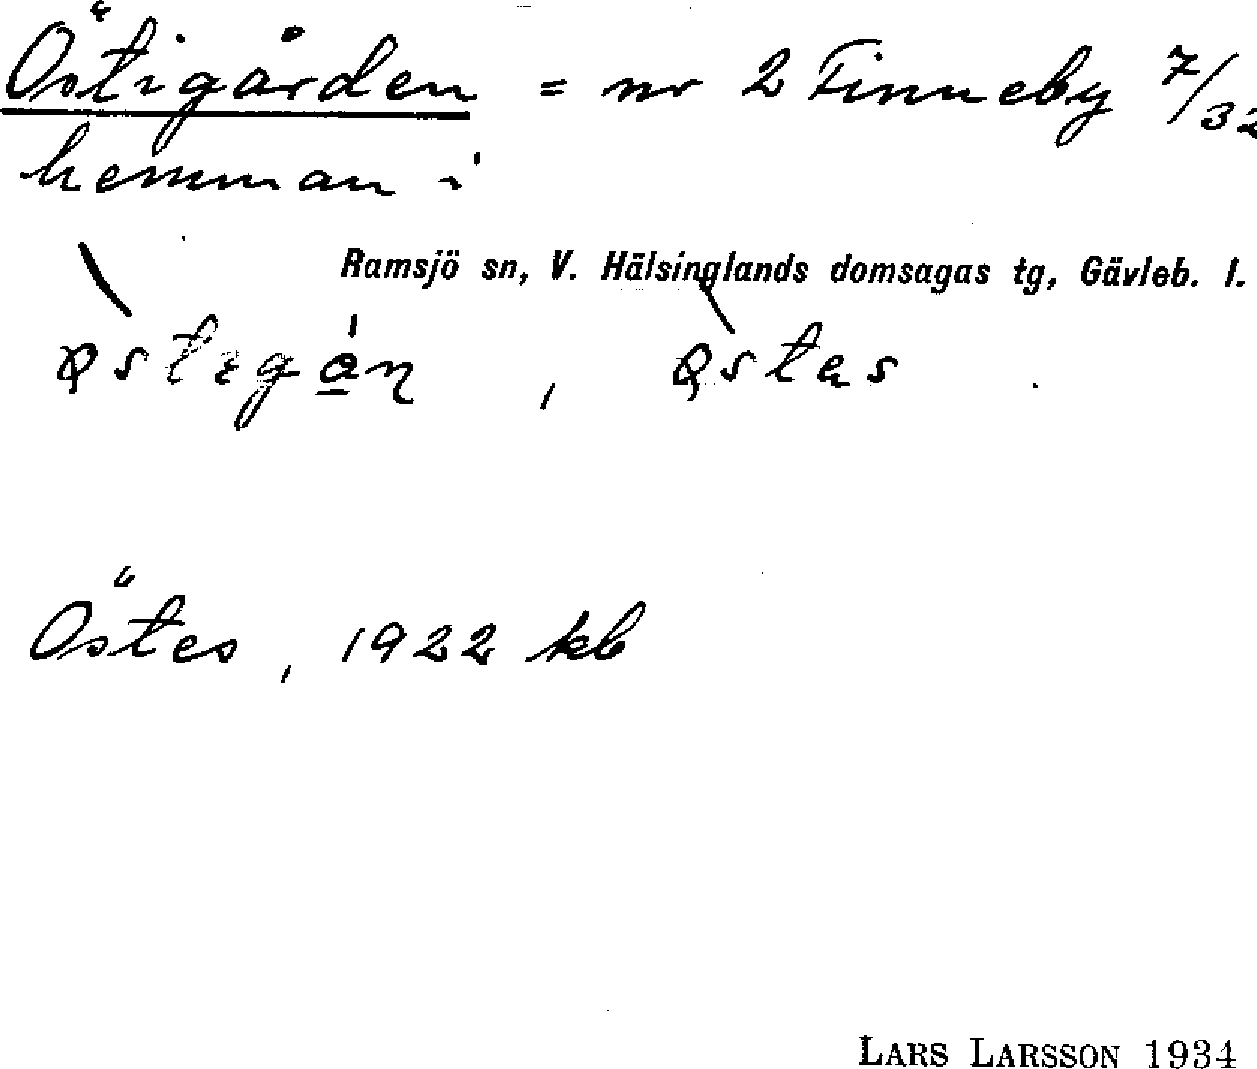 Östigården = nr 2 Finneby 7/32
hemman i
Ramsjö sn, V. Hälsinglands domsagas tg, Gävleb. l.
Östes, 1922 kb
LARS LARSSON 1934